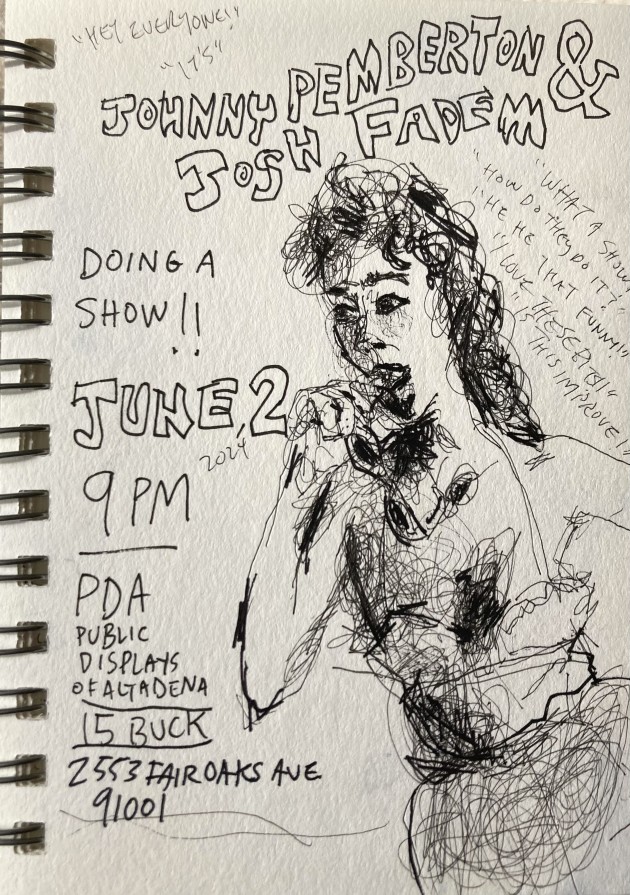 "HEY EVERYONE!"
"IT'S"
JOHNNY PEMBERTON &
JOSH FADEM
"WHAT A SHOW!
"HOW DO THEY DO IT?"
"HE HE THAT FUNNY!"
"I LOVE THESE BITS!"
"IS THIS IMPROVE!?
DOING A
SHOW!!
JUNE, 2
2024
9 PM
PDA
PUBLIC
DISPLAYS
OF ALTADENA
15 BUCK
2553 FAIR OAKS AVE
91001